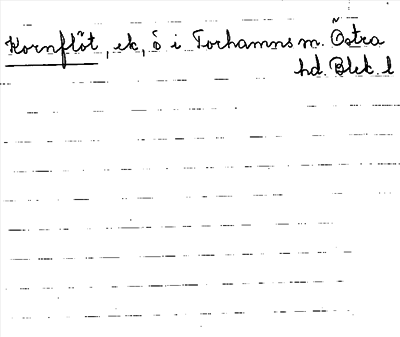 Kornflöt, ek, ö i Torhamns m. Östra
hd. Blek. l